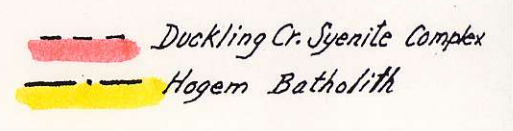 Duckling Cr. Syenite Complex
Hogem Batholith